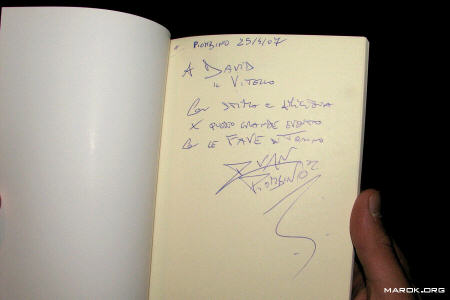 PIOMBINO 25/4/07
A DAVID
IL VITELLO
Con STIMA e
X QUESTO GRANDE EVENTO
Con LE FAVE
IVAN
PIOMBINO
MAROK.ORG